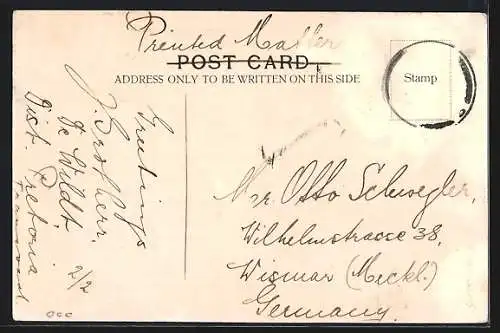 Printed Matter
POST CARD.
ADDRESS ONLY TO BE WRITTEN ON THIS SIDE
Stamp
Greetings
J. Brotherr,
De Wildt
Dist. Pretoria
Transvaal.
2/2
Mr Otto Schwegler,
Wilhelmstrasse 38,
Wismar (Meckl.)
Germany.